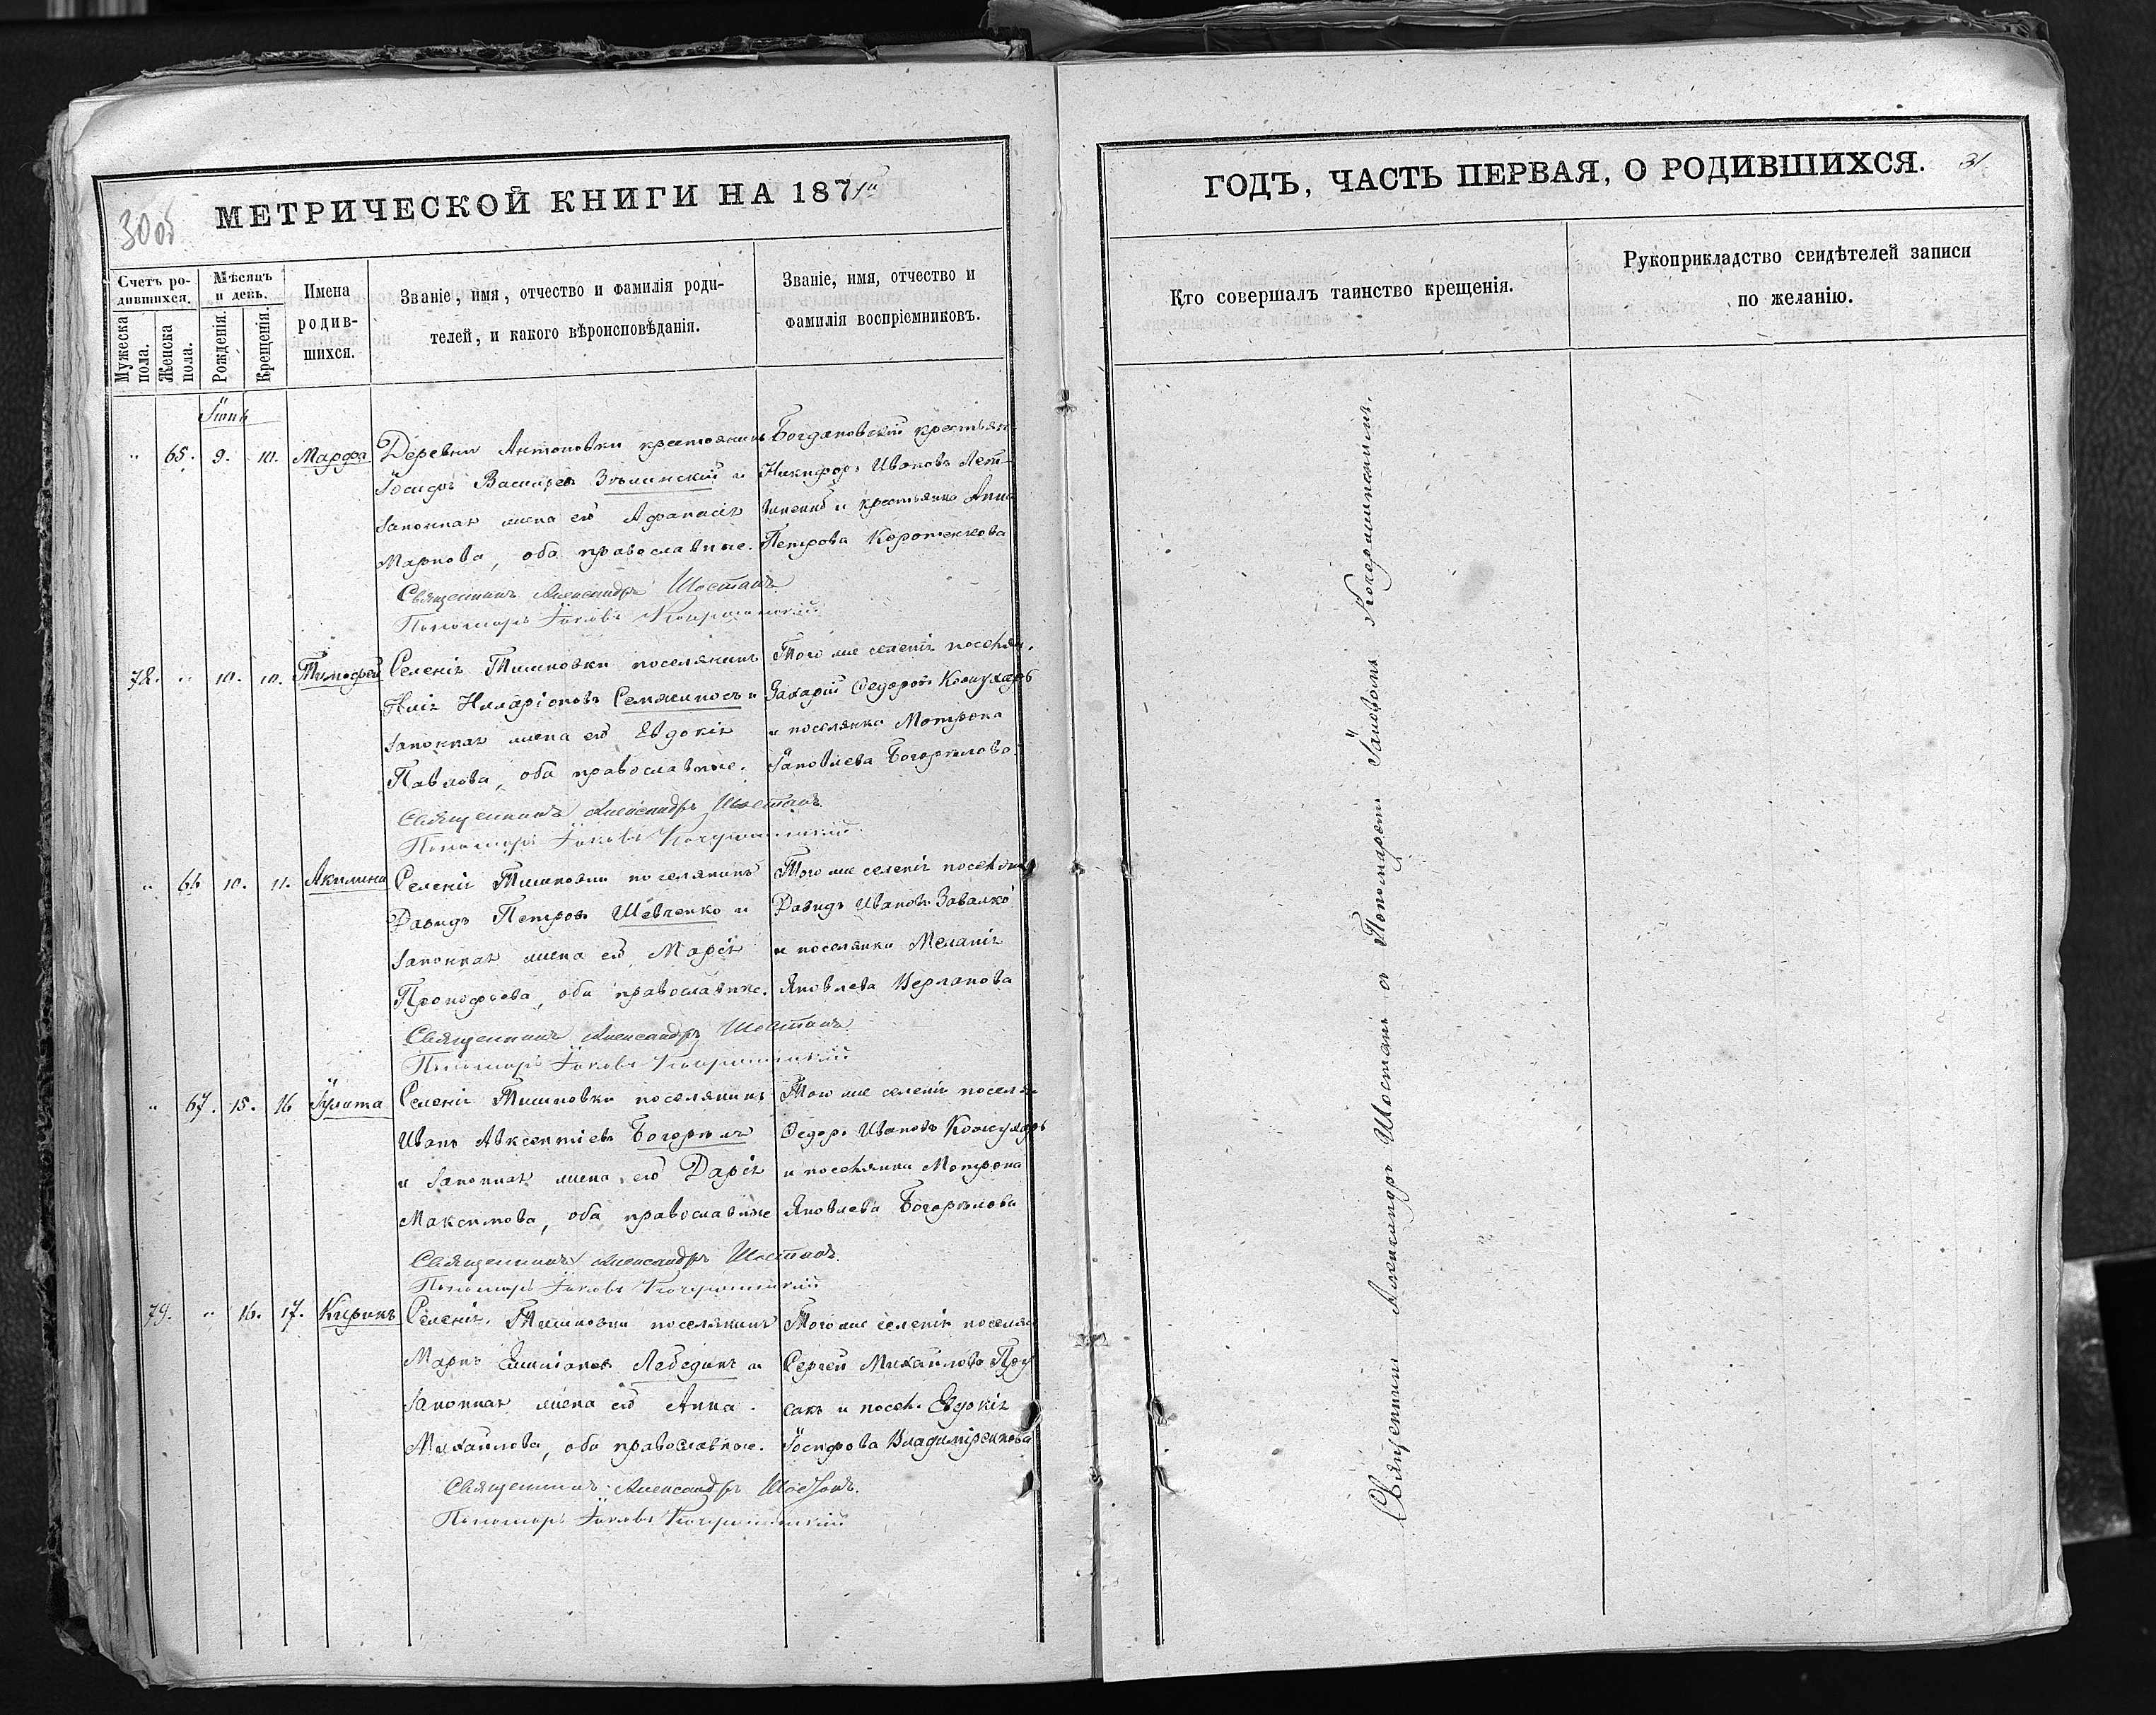 30об
МЕТРИЧЕСКОЙ КНИГИ НА 1871й
Счетъ родившихся.
Мужеска пола.
Женска пола.
Мѣсяцъ и день.
Рожденія.
Крещенія.
Имена
родив-
шихся.
Званіе, имя, отчество и фамилія роди-
телей, и какого вѣроисповѣданія.
Званіе, имя, отчество и
фамилія воспріемниковъ.
65. 9. 10. Марфа
Деревни Антоновки крестьянинъ
Іосифъ Васильевъ и
законная жена его Афанасія
Маркова, оба православные.
Богдановскій крестьян.
Никифоръ Ивановъ
и крестьянка Анна
Петрова
Священникъ Александръ Шостакъ
Пономарь Іаковъ
78. 10. 10. Тимофей
Селенія Тишковки поселянинъ
Илія Иларіоновъ и
законная жена его Евдокія
Павлова, оба православные.
Того же селенія поселян.
Захарій Федоровъ Кожухарь
и поселянка Мотрона
Іаковлева Богорѣлова
Священникъ Александръ Шостакъ
Пономарь Іаковъ
66 10. 11. Акилина
Селенія Тишковки поселянинъ
Давидъ Петровъ Шевченко и
законная жена его Марія
Прокофьева, оба православные.
Того же селенія поселян
Давидъ Ивановъ Завалко
и поселянка Меланія
Яковлева Верланова
Священникъ Александръ Шостакъ
Пономарь Іаковъ
67. 15. 16 Іулита
Селенія Тишковки поселянинъ
Иванъ Авксентіевъ Богорѣлъ
и законная жена его Дарія
Максимова, оба православные
Того же селенія поселян
Федоръ Ивановъ Кожухарь
и поселянка Мотрона
Яковлева Богорѣлова
Священникъ Александръ Шостакъ
Пономарь Іаковъ
79. 16. 17. Кирикъ
Селенія Тишковки поселянинъ
Маркъ Лебединъ и
законная жена его Анна
Михайлова, оба православные.
Того же селенія поселян
Сергей Михайловъ Пру
сакъ и посел. Евдокія
Іосифова
Священникъ Александръ Шостакъ.
Пономарь Іаковъ
ГОДЪ, ЧАСТЬ ПЕРВАЯ, О РОДИВШИХСЯ.
31
Кто совершалъ таинство крещенія.
Рукоприкладство свидѣтелей записи
по желанію.
Священникъ Александръ Шостакъ съ Пономаремъ Іаковомъ